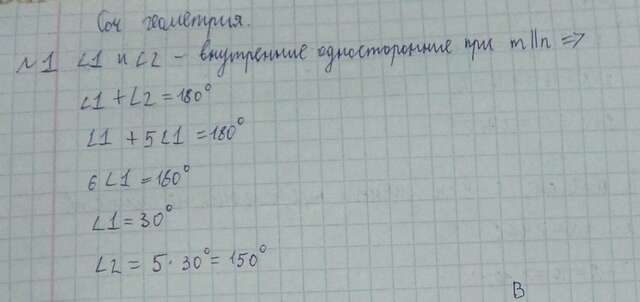 Соч геометрия.
№1 ∠1 и ∠2 – внутренние односторонние при m||n =>
∠1 + ∠2 = 180°
∠1 + 5∠1 = 180°
6∠1 = 160°
∠1 = 30°
∠2 = 5 · 30° = 150°
B